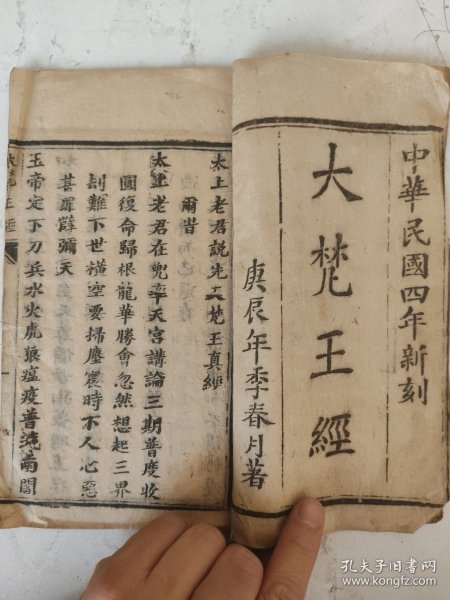 中華民國四年新刻
大梵王經
庚辰年季春月著
太上老君說先大梵王真經
爾旹
太上老君在兜率天宮講論三期普度收
圓復命歸根龍華勝會忽然想起三界
刦難下世橫空要掃塵寰時下人心惡
甚罪孽彌天
玉帝定下刀兵水火虎狼瘟疫普流南閻
孔夫子旧书网
www.kongfz.com